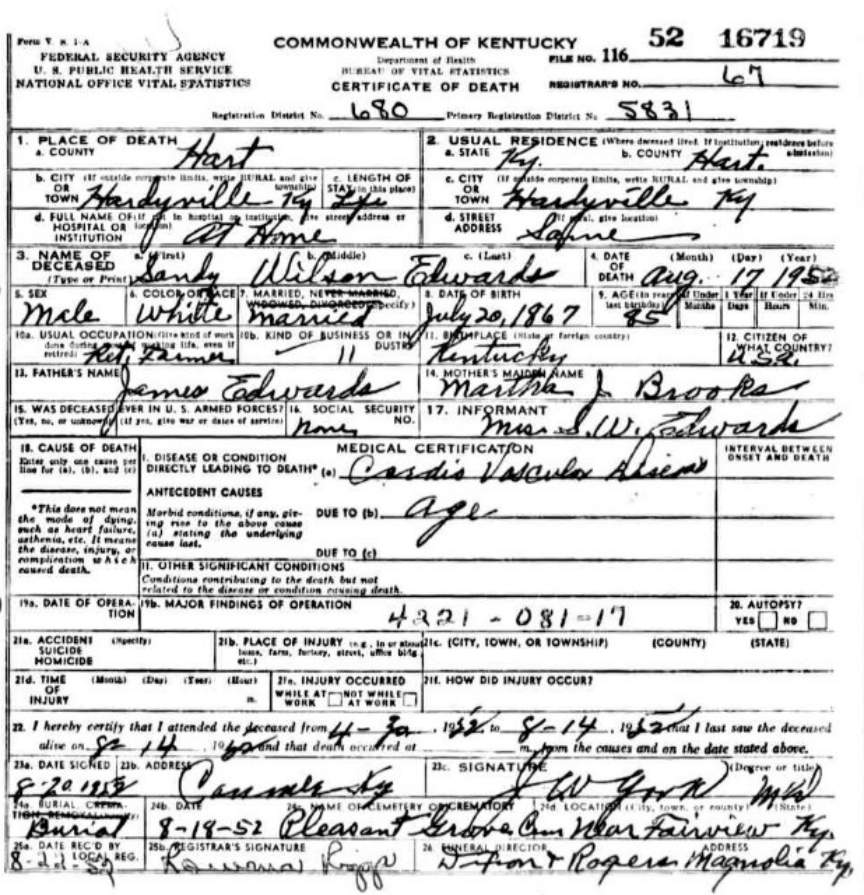 Form V. S. 1-A
COMMONWEALTH OF KENTUCKY
52 16719
FEDERAL SECURITY AGENCY
Department of Health
FILE NO. 116
U. S. PUBLIC HEALTH SERVICE
BUREAU OF VITAL STATISTICS
NATIONAL OFFICE VITAL STATISTICS
CERTIFICATE OF DEATH
REGISTRAR'S NO. 67
Registration District No. 680 Primary Registration District No. 5831
1. PLACE OF DEATH
a. COUNTY Hart
2. USUAL RESIDENCE (Where deceased lived. If institution; residence before admission)
a. STATE Ky. b. COUNTY Hart.
b. CITY (If outside corporate limits, write RURAL and give township)
OR
TOWN Hardyville Ky
c. LENGTH OF
STAY (in this place)
Life
c. CITY (If outside corporate limits, write RURAL and give township)
OR
TOWN Hardyville Ky
d. FULL NAME OF (If not in hospital or institution, give street address or location)
HOSPITAL OR
INSTITUTION At Home
d. STREET (If rural, give location)
ADDRESS Same
3. NAME OF
DECEASED
(Type or Print)
a. (First) b. (Middle) c. (Last)
Sandy Wilson Edwards
4. DATE
OF
DEATH
(Month) (Day) (Year)
Aug. 17 1952
5. SEX
Male
6. COLOR OR RACE
White
7. MARRIED, NEVER MARRIED,
WIDOWED, DIVORCED (Specify)
Married
8. DATE OF BIRTH
July 20, 1867
9. AGE (In years last birthday)
85
If Under 1 Year
Months Days
If Under 24 Hrs
Hours Min.
10a. USUAL OCCUPATION (Give kind of work done during most of working life, even if retired)
Ret. Farmer
10b. KIND OF BUSINESS OR INDUSTRY
11
11. BIRTHPLACE (State or foreign country)
Kentucky
12. CITIZEN OF
WHAT COUNTRY?
U.S.a.
13. FATHER'S NAME
James Edwards
14. MOTHER'S MAIDEN NAME
Martha J. Brooks
15. WAS DECEASED EVER IN U. S. ARMED FORCES?
(Yes, no, or unknown) (If yes, give war or dates of service)
16. SOCIAL SECURITY
NO.
None
17. INFORMANT
S. W. Edwards
18. CAUSE OF DEATH
Enter only one cause per
line for (a), (b), and (c)
MEDICAL CERTIFICATION
INTERVAL BETWEEN
ONSET AND DEATH
I. DISEASE OR CONDITION
DIRECTLY LEADING TO DEATH* (a) Cardio Vascular Disease
*This does not mean
the mode of dying,
such as heart failure,
asthenia, etc. It means
the disease, injury, or
complication which
caused death.
ANTECEDENT CAUSES
Morbid conditions, if any, giv-
ing rise to the above cause
(a) stating the underlying
cause last.
DUE TO (b) age
DUE TO (c)
II. OTHER SIGNIFICANT CONDITIONS
Conditions contributing to the death but not
related to the disease or condition causing death.
19a. DATE OF OPERA-
TION
19b. MAJOR FINDINGS OF OPERATION
4221 - 081-17
20. AUTOPSY?
YES NO
21a. ACCIDENT (Specify)
SUICIDE
HOMICIDE
21b. PLACE OF INJURY (e.g., in or about
home, farm, factory, street, office bldg.,
etc.)
21c. (CITY, TOWN, OR TOWNSHIP) (COUNTY) (STATE)
21d. TIME (Month) (Day) (Year) (Hour)
OF
INJURY m.
21e. INJURY OCCURRED
WHILE AT WORK NOT WHILE AT WORK
21f. HOW DID INJURY OCCUR?
22. I hereby certify that I attended the deceased from , 1952 to 8-14, 1952 that I last saw the deceased
alive on 8-14, and that death occurred at m., from the causes and on the date stated above.
23a. DATE SIGNED
8-20 1952
23b. ADDRESS
Ky
23c. SIGNATURE (Degree or title)
J W
24a. BURIAL, CREMA-
TION, REMOVAL (Specify)
Burial
24b. DATE
8-18-52
24c. NAME OF CEMETERY OR CREMATORY
Pleasant Grove Cem
24d. LOCATION (City, town, or county) (State)
Near Fairview Ky.
25a. DATE REC'D BY
LOCAL REG.
8-22-52
25b. REGISTRAR'S SIGNATURE
26. FUNERAL DIRECTOR ADDRESS
Rogers Magnolia Ky.